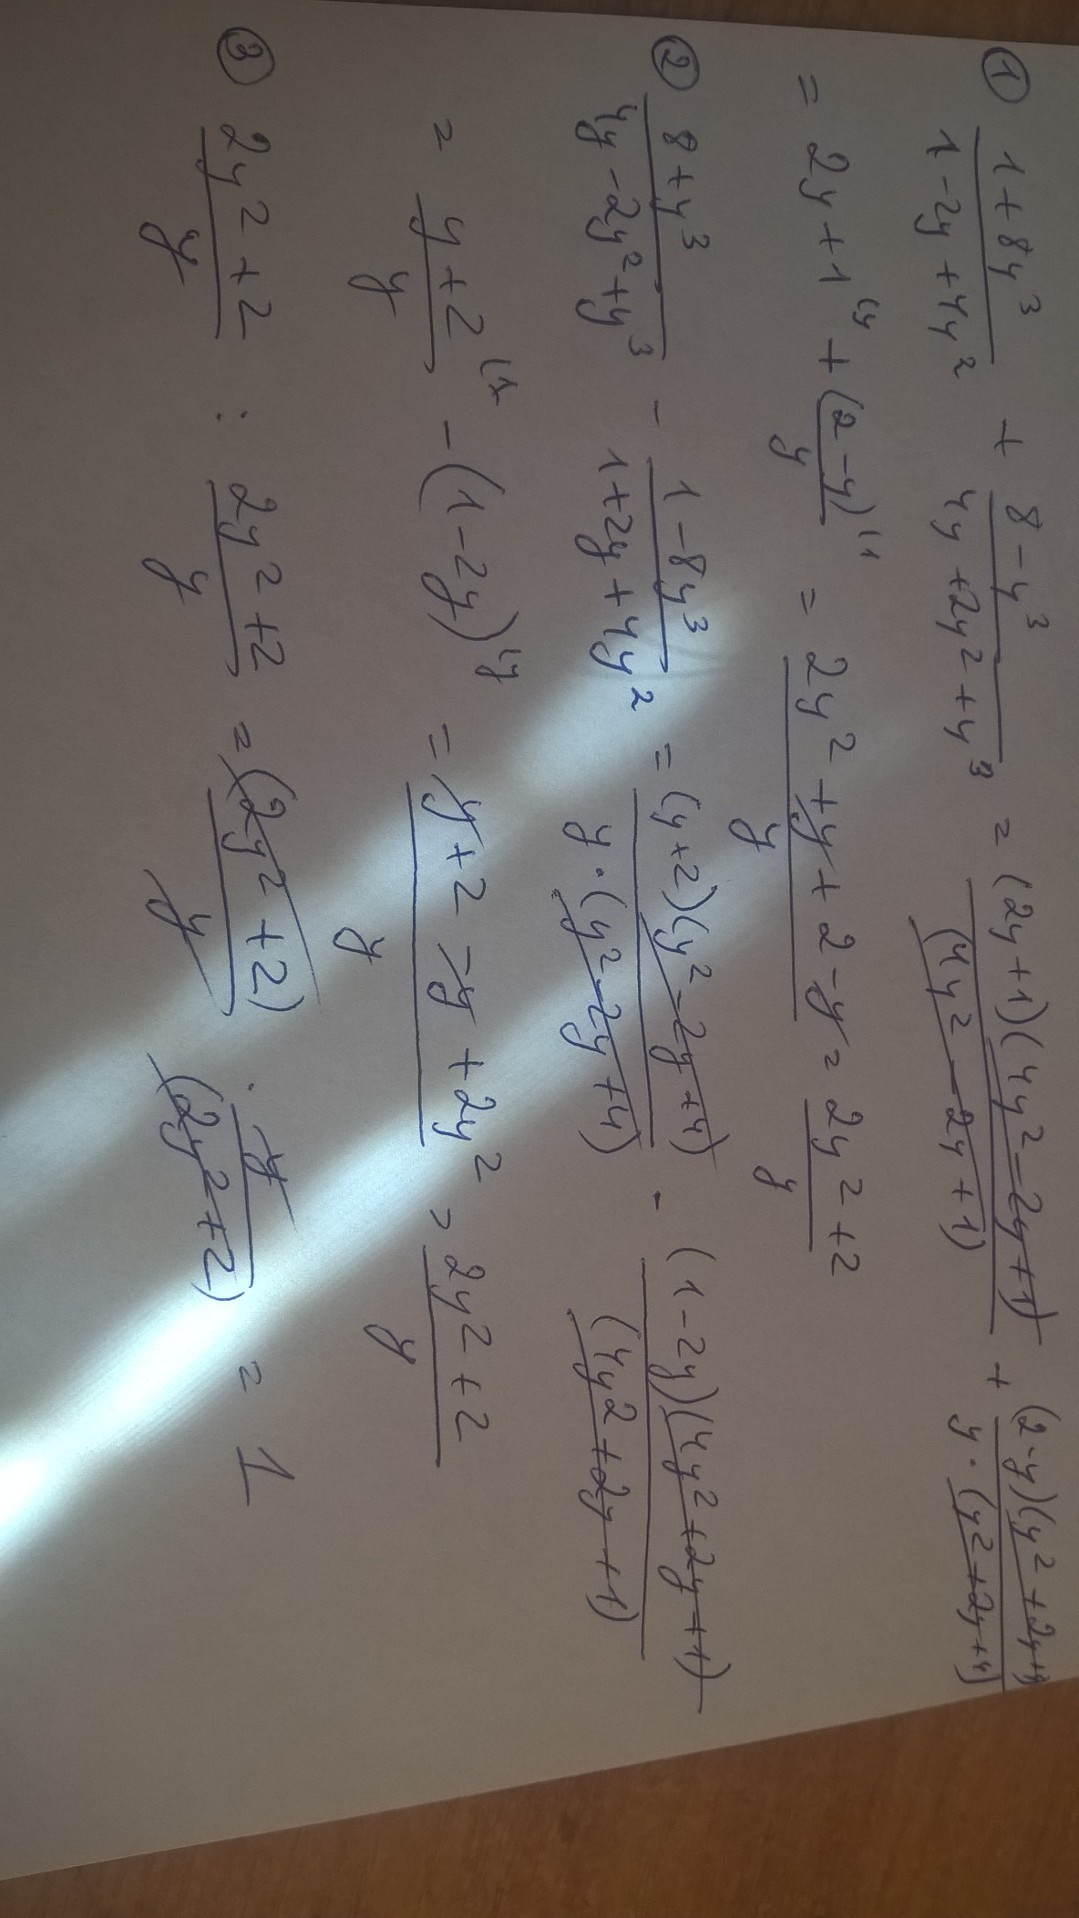 ① (1+8y³)/(1-2y+4y²) + (8-y³)/(4y+2y²+y³) = (2y+1)(4y²-2y+1)/(4y²-2y+1) + (2-y)(y²+2y+4)/(y·(y²+2y+4))
= 2y+1⁽ʸ + (2-y)⁽¹/y = (2y²+y+2-y)/y = (2y²+2)/y
② (8+y³)/(4y-2y²+y³) - (1-8y³)/(1+2y+4y²) = (y+2)(y²-2y+4)/(y·(y²-2y+4)) - (1-2y)(4y²+2y+1)/(4y²+2y+1)
= (y+2)⁽¹/y - (1-2y)⁽ʸ = (y+2-y+2y²)/y = (2y²+2)/y
③ (2y²+2)/y : (2y²+2)/y = (2y²+2)/y · y/(2y²+2) = 1